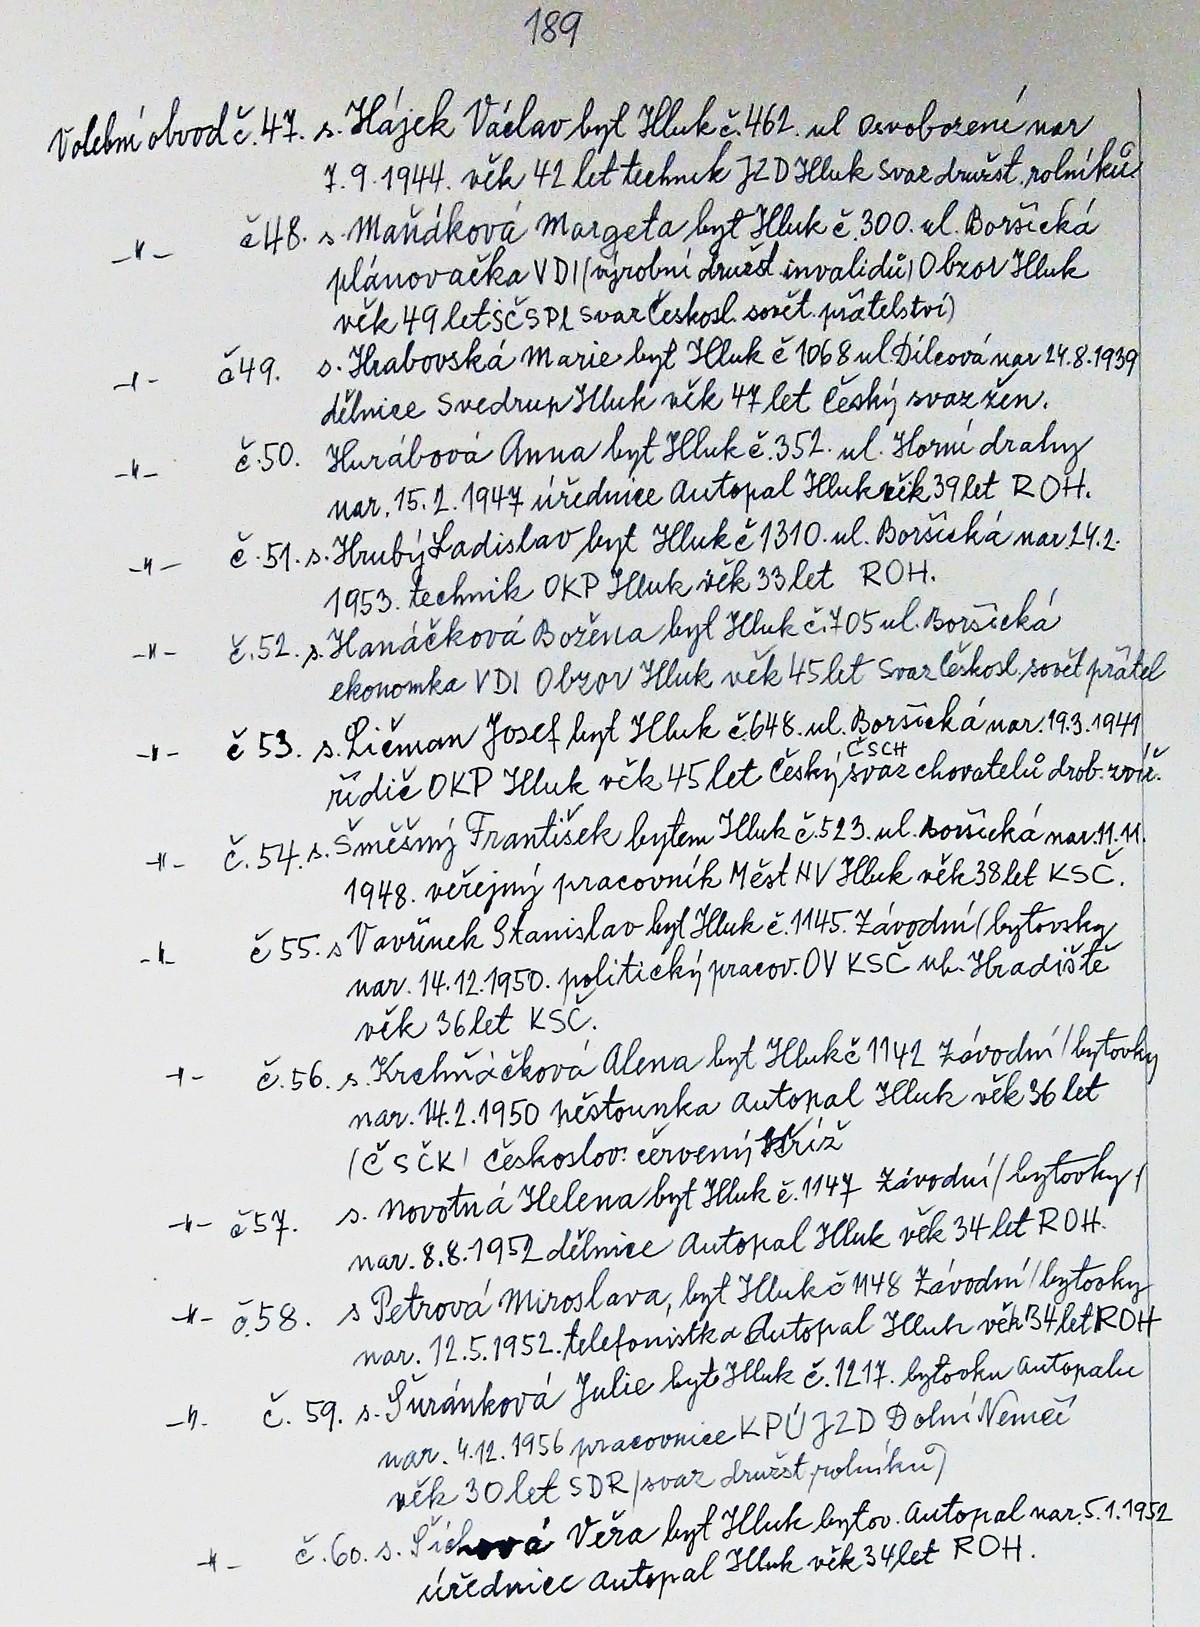 189
Volební obvod č.47. s. Hájek Václav byt Hluk č.462. ul Osvobození nar
7.9.1944. věk 42 let technik JZD Hluk Svaz družst. rolníků
-"- č48. s. Maňáková Margeta byt Hluk č.300. ul. Boršická
plánovačka VDI (výrobní družst. invalidů) Obzor Hluk
věk 49 let SČSPł Svaz Českosl. sovět. přátelství)
-"- č49. s. Hrabovská Marie byt Hluk č 1068 ul. Dílcová nar 24.8.1939
dělnice Svedrup Hluk věk 47 let Český svaz žen.
-"- č.50. Hurábová Anna byt Hluk č.352. ul. Horní drahy
nar. 15.2.1947 úřednice Autopal Hluk věk 39 let ROH.
-"- č.51. s. Hrubý Ladislav byt Hluk č 1310. ul. Boršická nar 24.2.
1953. technik OKP Hluk věk 33 let ROH.
-"- č.52. s. Hanáčková Božena byt Hluk č.705 ul. Boršická
ekonomka VDI Obzor Hluk věk 45 let Svaz Českosl. sovět přátel
-"- č 53. s. Ličman Josef byt Hluk č.648. ul. Boršická nar. 19.3.1941
ČSCH
řidič OKP Hluk věk 45 let Český svaz chovatelů drob. zvíř.
-"- č.54. s. Směšný František bytem Hluk č.523. ul. Boršická nar. 11.11.
1948. veřejný pracovník Měst NV Hluk věk 38 let KSČ.
-"- č 55. s Vavřinek Stanislav byt Hluk č.1145. Závodní (bytovky
nar. 14.12.1950. politický pracov. OV KSČ uh. Hradiště
věk 36 let KSČ.
-"- č.56. s. Krchňáčková Alena byt Hluk č 1142 Závodní / bytovky
nar. 14.2.1950 pěstounka Autopal Hluk věk 36 let
/ČSČK/ Českoslov. červený kříž
-"- č57. s. Novotná Helena byt Hluk č.1147 Závodní / bytovky /
nar. 8.8.1952 dělnice Autopal Hluk věk 34 let ROH.
-"- č.58. s Petrová Miroslava, byt Hluk č 1148 Závodní / bytovky
nar. 12.5.1952. telefonistka Autopal Hluk věk 34 let ROH
-"- č. 59. s. Šuránková Julie byt Hluk č.1217. bytovku Autopalu
nar. 4.12.1956 pracovnice KPÚ JZD Dolní Němčí
věk 30 let SDR (svaz družst. rolníků)
-"- č.60. s. Šíchová Věra byt Hluk bytov. Autopal nar. 5.1.1952
úřednice Autopal Hluk věk 34 let ROH.